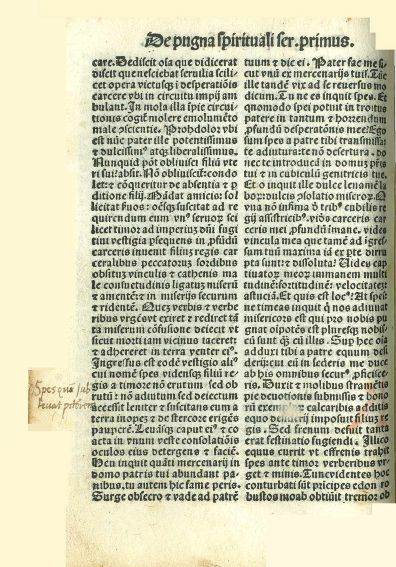 De pugna spirituali ser. primus.
care. Dediscit oĩa que didicerat
discit que nesciebat seruilia scili
cet opera victusqꝫ i desperatiõis
carcere vbi in circuitu impij am
bulant. In mola illa ĩpie circui
tionis cogit molere emolumẽto
male ꝯscientis. Prohdolor vbi
est nũc pater ille potentissimus
⁊ dulcissimꝰ atqꝫ liberalissimus.
Nunquid põt obliuisci filiũ vte
ri sui? absit. Nõ obliuiscit: condo
let: ⁊ cõqueritur de absentia ⁊ ꝑ
ditione filij. Mãdat amicis: sol
licitat suos:
quirendum eum vnꝰ seruoꝝ sci
licet timor ad imperiuꝫ dñi fugi
tiui vestigia ꝑsequens in ꝓfũdũ
carceris inuenit filiuꝫ regis car
ceralibus peccatorum sordibus
obsitũ vinculis ⁊ cathenis ma
le consuetudinis ligatus miserũ
⁊ amentẽ: in miserijs securum
⁊ ridentẽ. Quez verbis ⁊ verbe
ribus vrgẽs vt exiret ⁊ rediret tã
ta miserum cõfusione deiecit vt
sicut morti iam vicinus taceret:
⁊ adhereret in terra venter eiꝰ.
Ingressus est eodẽ vestigio aliꝰ
cui nomẽ spes. videns filiũ re
gis a timore nõ erutum sed ob
rutũ: nõ adiutum sed deiectum
accessit leniter ⁊ suscitans eum a
terra inopẽ ⁊ de stercore erigẽs
pauperẽ. Leuãsqꝫ caput ei ⁊ oc
cato in vnum veste consolatiõis
oculos eius detergens ⁊ faciẽ.
Heu inquit quãti mercenarij in
domo patris tui abundant pa
nibus. tu autem hic fame peris.
Surge obsecro ⁊ vade ad patrẽ
tuum ⁊ dic ei. Pater fac me si
cut vnũ ex mercenarijs tuis. Tũc
ille tandẽ vix ad se reuersus mo
dicum. Tu ne es inquit spes. Et
quomodo spes potuit in troitus
patere in tantum ⁊ horrendum
ꝓfundũ desperatõnis mee? Ego
sum spes a patre tibi transmissa:
te adiutura: te nõ desertura. do
nec te introducã in domuꝫ pris
tui ⁊ in cubiculũ genitricis tue.
Et o inquit ille dulce lenamẽ la
borꝫ: dulcis ꝯsolatio miseroꝝ. O
vna nõ infima
gij assistricibꝰ. vides carceris car
ceris mei ꝓfundũ imane. vides
vincula mea que tamẽ ad ĩgres
sum tuũ maxima iã ex pte dirru
pta sunt: ⁊ dissoluta? Uides cap
tiuatorũ meoꝝ immanem multi
tudinẽ: fortitudinẽ: velocitatẽ:
astuciã. Et quis est locꝰ? At spes:
ne timeas inquit q̃ nos adiuuat
misericors est qui pro nobis pu
gnat oĩpotẽs est plureſꝫ nobis
cum sunt qꝫ cũ illis. Sup hec oĩa
adduxi tibi a patre equum desi
deriũ: cui cũ sederis me duce
ab his omnibus securꝰ ꝓficisce
ris. Duxit ⁊ molibus stramẽtis
pie deuotionis submissis ⁊ bono
rũ exemploꝝ calcaribus additis
equo desiderij imposuit filius re
gis. Sed frenum defuit tanta
erat festinatio fugiendi. Illico
equus currit vt effrenis trahit
spes ante timor verberibus vr
get ⁊ minis. Tunc videntes hoc
conturbati sũt pricipes edon ro
bustos moab obtinuit tremor ob
Spes qua sub
leuat pitores